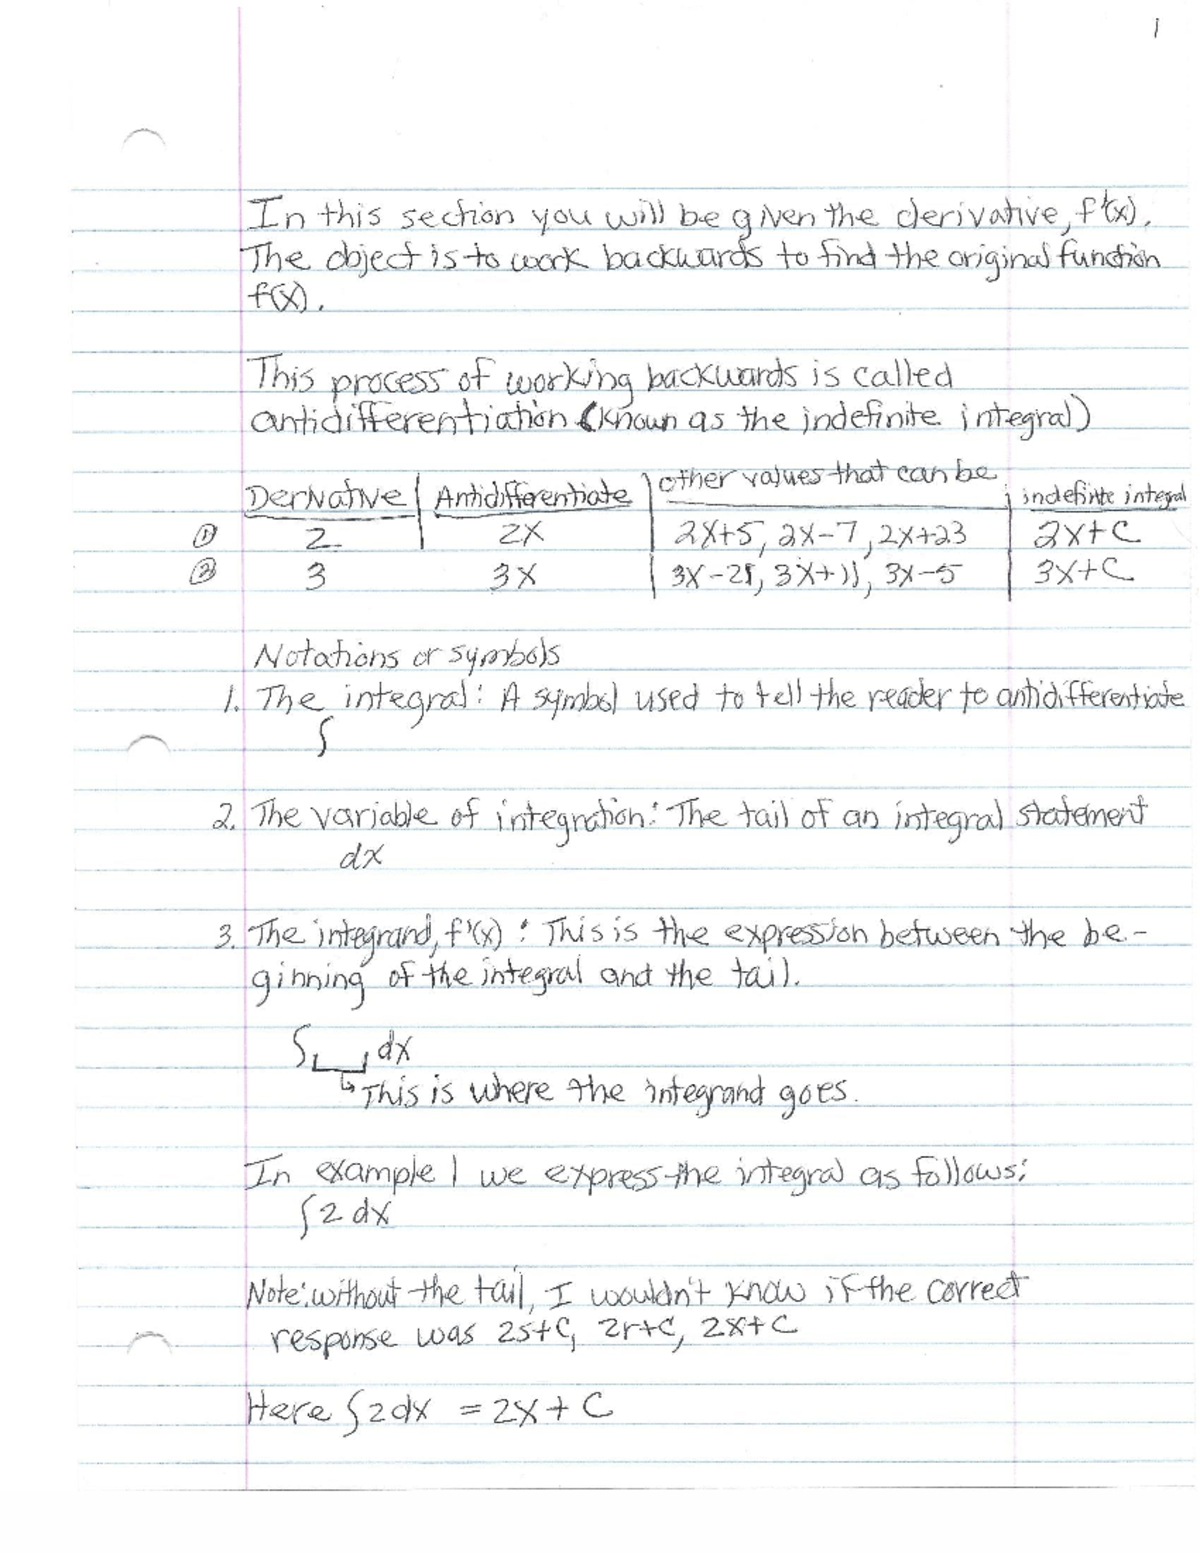 1
In this section you will be given the derivative, f'(x).
The object is to work backwards to find the original function
f(x).
This process of working backwards is called
antidifferentiation (known as the indefinite integral)
Derivative | Antidifferentiate | other values that can be | indefinite integral
① 2 2x 2x+5, 2x-7, 2x+23 2x+C
② 3 3x 3x-21, 3x+11, 3x-5 3x+C
Notations or symbols
1. The integral: A symbol used to tell the reader to antidifferentiate
∫
2. The variable of integration: The tail of an integral statement
dx
3. The integrand, f'(x): This is the expression between the be-
ginning of the integral and the tail.
∫ dx
↳ This is where the integrand goes.
In example 1 we express the integral as follows:
∫2 dx
Note: without the tail, I wouldn't know if the correct
response was 2s+C, 2r+C, 2x+C
Here ∫2dx = 2x+C